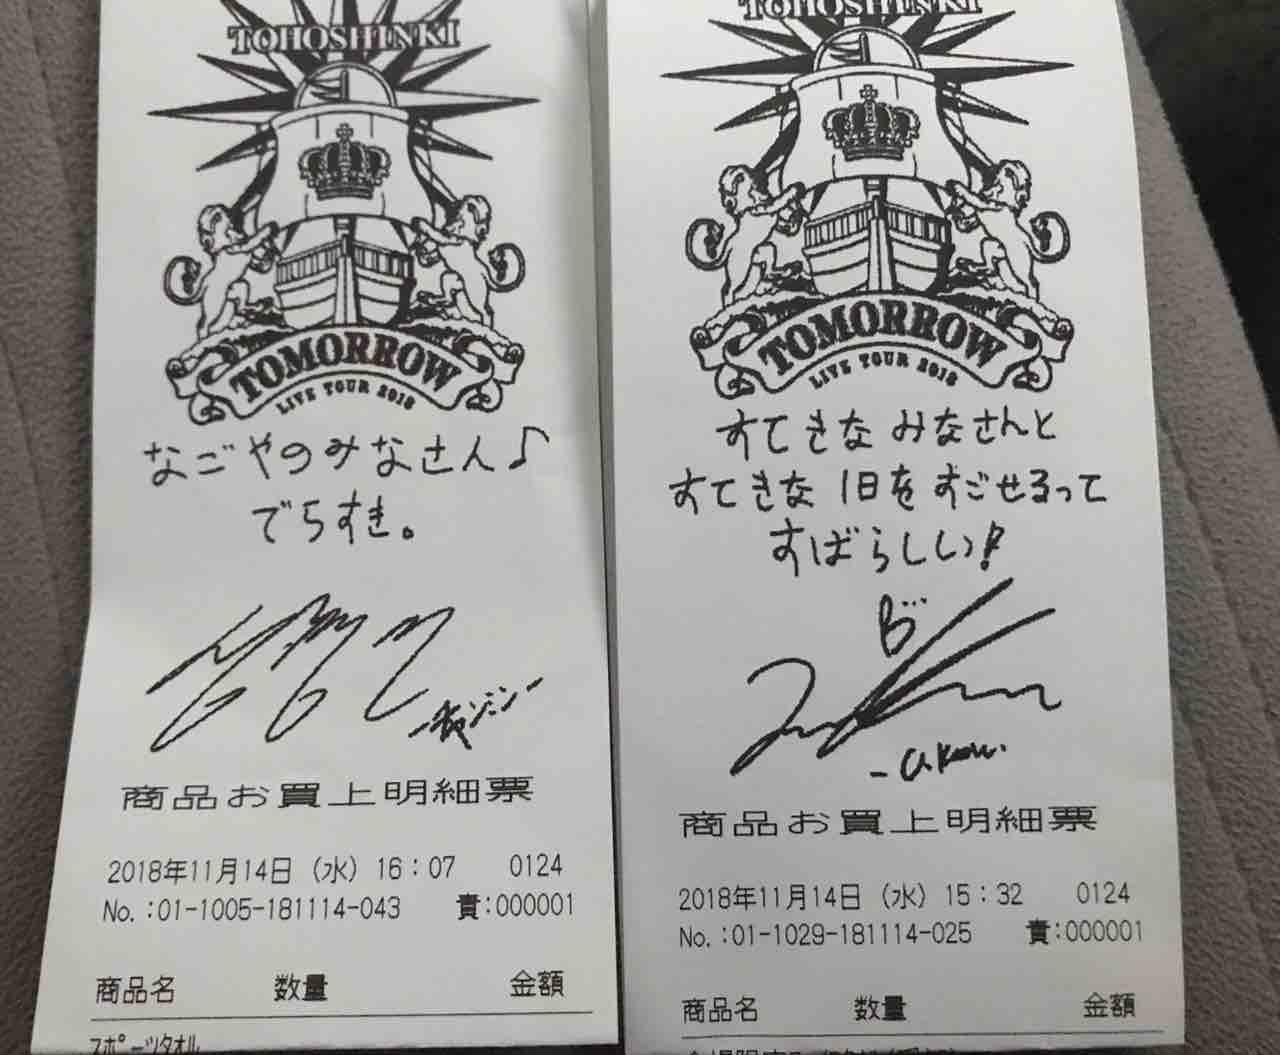 TOHOSHINKI
TOMORROW
LIVE TOUR 2018
なごやのみなさん♪
でらすき。
-チャンミン-
商品お買上明細票
2018年11月14日 (水) 16:07 0124
No.:01-1005-181114-043 責:000001
商品名 数量 金額
スポーツタオル
TOHOSHINKI
TOMORROW
LIVE TOUR 2018
すてきなみなさんと
すてきな1日をすごせるって
すばらしい!
商品お買上明細票
2018年11月14日 (水) 15:32 0124
No.:01-1029-181114-025 責:000001
商品名 数量 金額